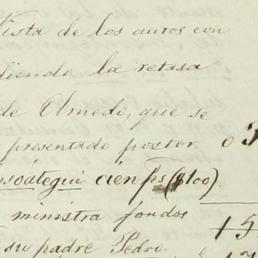 Vista de los autos con
diendo la retasa
de Olmedo, que se
presentado postor
cien ps ($100)
ministra fondos
su padre Pedro